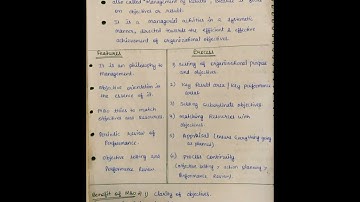 also called "Management by Results", because it focus
on objectives or result.
It is a managerial activities in a systematic
manner, directed towards the efficient & effective
achievement of organizational objectives.
Features
It is an philosophy to
Management.
Objective orientation is
the essence of it.
MBO tries to match
objectives and Resources
Periodic Review of
Performance
Objective setting and
Performance Review
Process
setting of organizational purpose
and objectives.
2) Key Result area / Key performance
areas
3) Setting Subordinate objectives
4) Matching Resources with
objectives
5) Appraisal (ensure everything going
as planned)
6) Process continuity
(objective setting, action planning,
Performance Review)
Benefit of MBO 1) Clarity of objectives